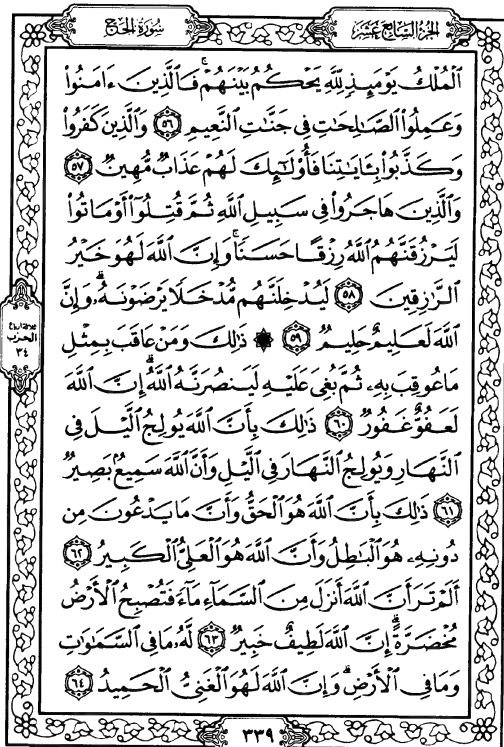 سُورَةُ الحَجّ
الجُزْءُ السَّابِعَ عَشَرَ
ٱلْمُلْكُ يَوْمَئِذٍ لِّلَّهِ يَحْكُمُ بَيْنَهُمْ ۚ فَٱلَّذِينَ ءَامَنُوا۟
وَعَمِلُوا۟ ٱلصَّـٰلِحَـٰتِ فِى جَنَّـٰتِ ٱلنَّعِيمِ ٥٦ وَٱلَّذِينَ كَفَرُوا۟
وَكَذَّبُوا۟ بِـَٔايَـٰتِنَا فَأُو۟لَـٰٓئِكَ لَهُمْ عَذَابٌ مُّهِينٌ ٥٧
وَٱلَّذِينَ هَاجَرُوا۟ فِى سَبِيلِ ٱللَّهِ ثُمَّ قُتِلُوٓا۟ أَوْ مَاتُوا۟
لَيَرْزُقَنَّهُمُ ٱللَّهُ رِزْقًا حَسَنًا ۚ وَإِنَّ ٱللَّهَ لَهُوَ خَيْرُ
ٱلرَّٰزِقِينَ ٥٨ لَيُدْخِلَنَّهُم مُّدْخَلًا يَرْضَوْنَهُۥ ۗ وَإِنَّ
ٱللَّهَ لَعَلِيمٌ حَلِيمٌ ٥٩ ۞ ذَٰلِكَ وَمَنْ عَاقَبَ بِمِثْلِ
مَا عُوقِبَ بِهِۦ ثُمَّ بُغِىَ عَلَيْهِ لَيَنصُرَنَّهُ ٱللَّهُ ۗ إِنَّ ٱللَّهَ
لَعَفُوٌّ غَفُورٌ ٦٠ ذَٰلِكَ بِأَنَّ ٱللَّهَ يُولِجُ ٱلَّيْلَ فِى
ٱلنَّهَارِ وَيُولِجُ ٱلنَّهَارَ فِى ٱلَّيْلِ وَأَنَّ ٱللَّهَ سَمِيعٌۢ بَصِيرٌ
٦١ ذَٰلِكَ بِأَنَّ ٱللَّهَ هُوَ ٱلْحَقُّ وَأَنَّ مَا يَدْعُونَ مِن
دُونِهِۦ هُوَ ٱلْبَـٰطِلُ وَأَنَّ ٱللَّهَ هُوَ ٱلْعَلِىُّ ٱلْكَبِيرُ ٦٢
أَلَمْ تَرَ أَنَّ ٱللَّهَ أَنزَلَ مِنَ ٱلسَّمَآءِ مَآءً فَتُصْبِحُ ٱلْأَرْضُ
مُخْضَرَّةً ۗ إِنَّ ٱللَّهَ لَطِيفٌ خَبِيرٌ ٦٣ لَّهُۥ مَا فِى ٱلسَّمَـٰوَٰتِ
وَمَا فِى ٱلْأَرْضِ ۗ وَإِنَّ ٱللَّهَ لَهُوَ ٱلْغَنِىُّ ٱلْحَمِيدُ ٦٤
ثلاثة أرباع
الحزب
٣٤
٣٣٩